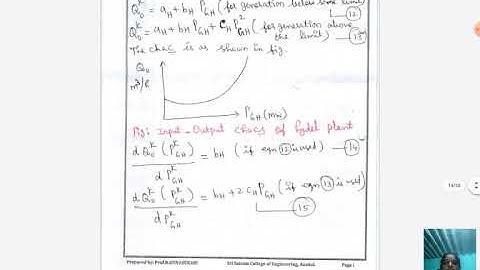 Q₀ᵏ = a_H + b_H P_GH (for generation below some limit) (12)
Q₀ᵏ = a_H + b_H Pᵏ_GH + C_H P²_GH (for generation above the limit) (13)
The chac is as shown in fig.
Q₀₀
m³/h
P_GH (mw)
Fig: Input-Output chacs of hydel plant
dQ₀ᵏ(Pᵏ_GH) / dPᵏ_GH = b_H (if eqn (12) is used) (14)
dQ₀ᵏ(Pᵏ_GH) / dPᵏ_GH = b_H + 2 C_H P_GH (if eqn (13) is used) (15)
Sri Sairam College of Engineering, Anekal.
Page |